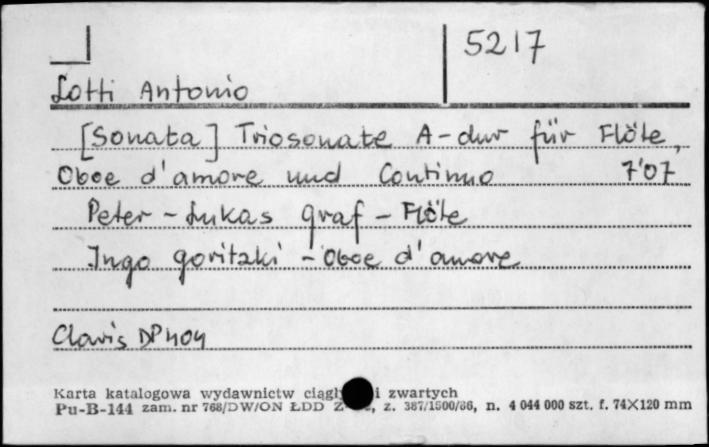 5217
Lotti Antonio
[Sonata] Triosonate A-dur für Flöte,
Oboe d'amore und Continuo 7'07
Peter-Lukas Graf - Flöte
Ingo Goritzki - Oboe d'amore
Clavis DP 404
Karta katalogowa wydawnictw ciągły i zwartych
Pu-B-144 zam. nr 768/DW/ON ŁDD Z , z. 387/1500/86, n. 4 044 000 szt. f. 74X120 mm